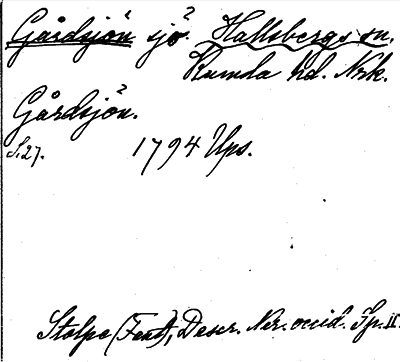 Gårdsjön sjö? Hallsbergs sn.
Kumla hd. Nrk.
Gårdsjön.
S. 27. 1794 Ups.
Stolpe (Fent), Descr. Ner. occid. Sp. II.